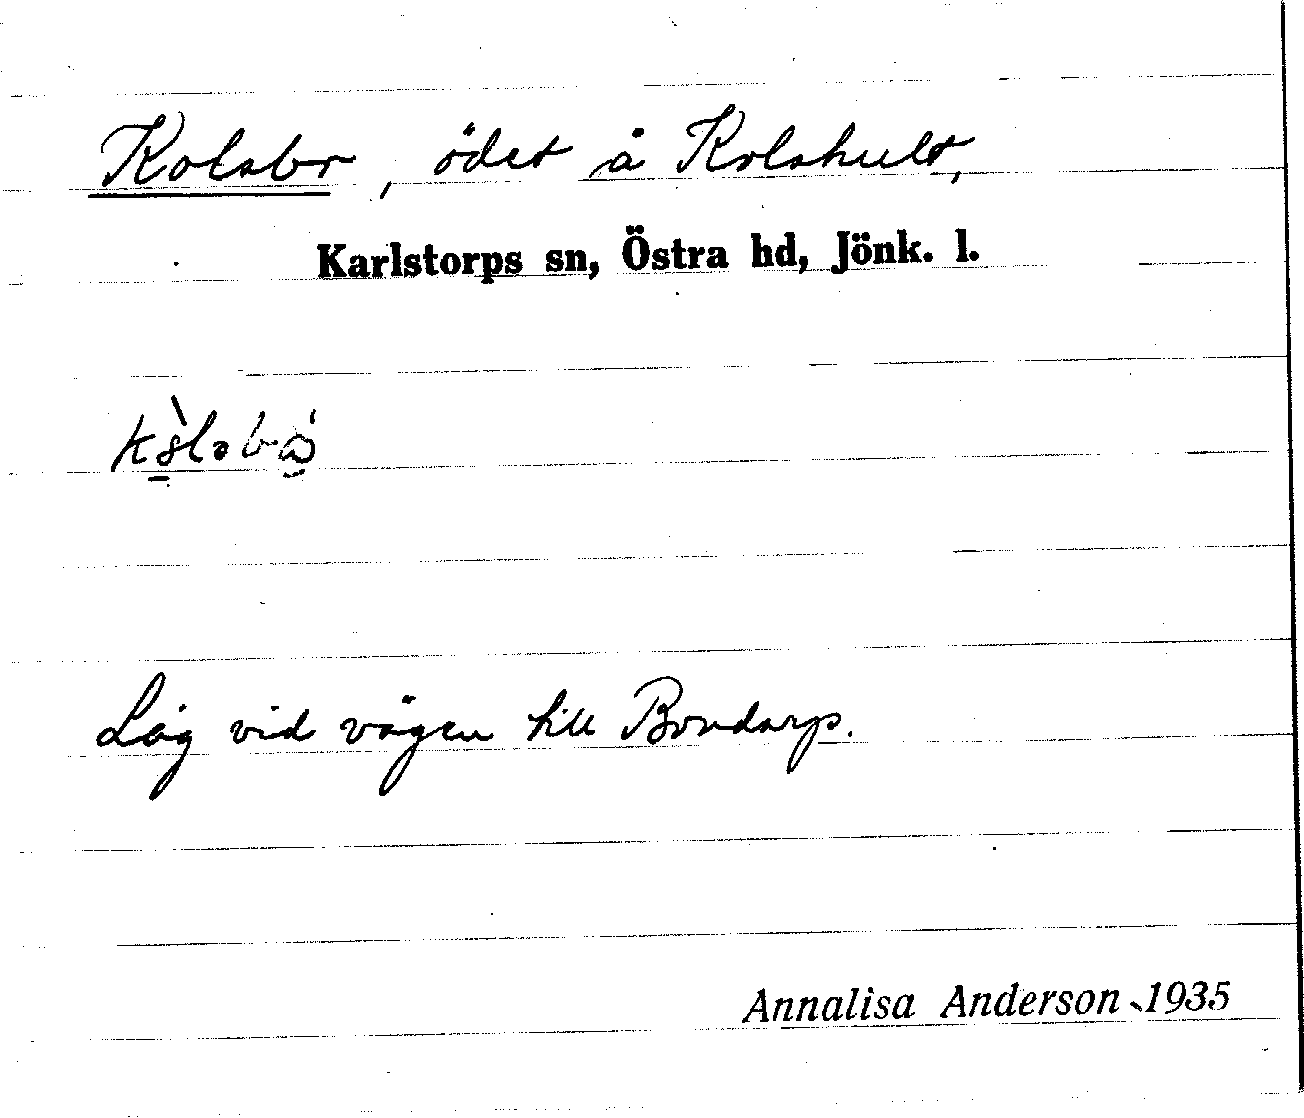 Kolabo, ödet å Kolshult,
Karlstorps sn, Östra hd, Jönk. l.
Låg vid vägen till Bondarp.
Annalisa Anderson 1935